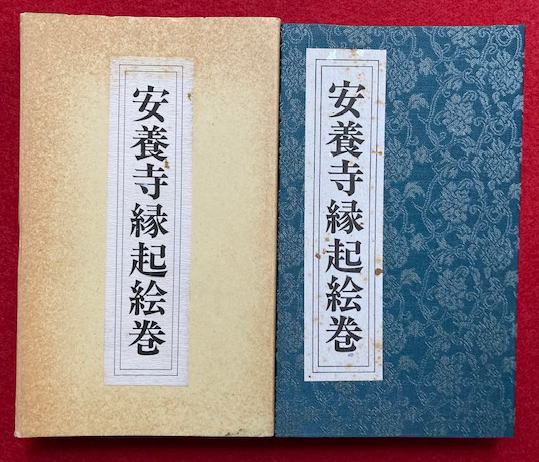 安養寺縁起絵巻
安養寺縁起絵巻